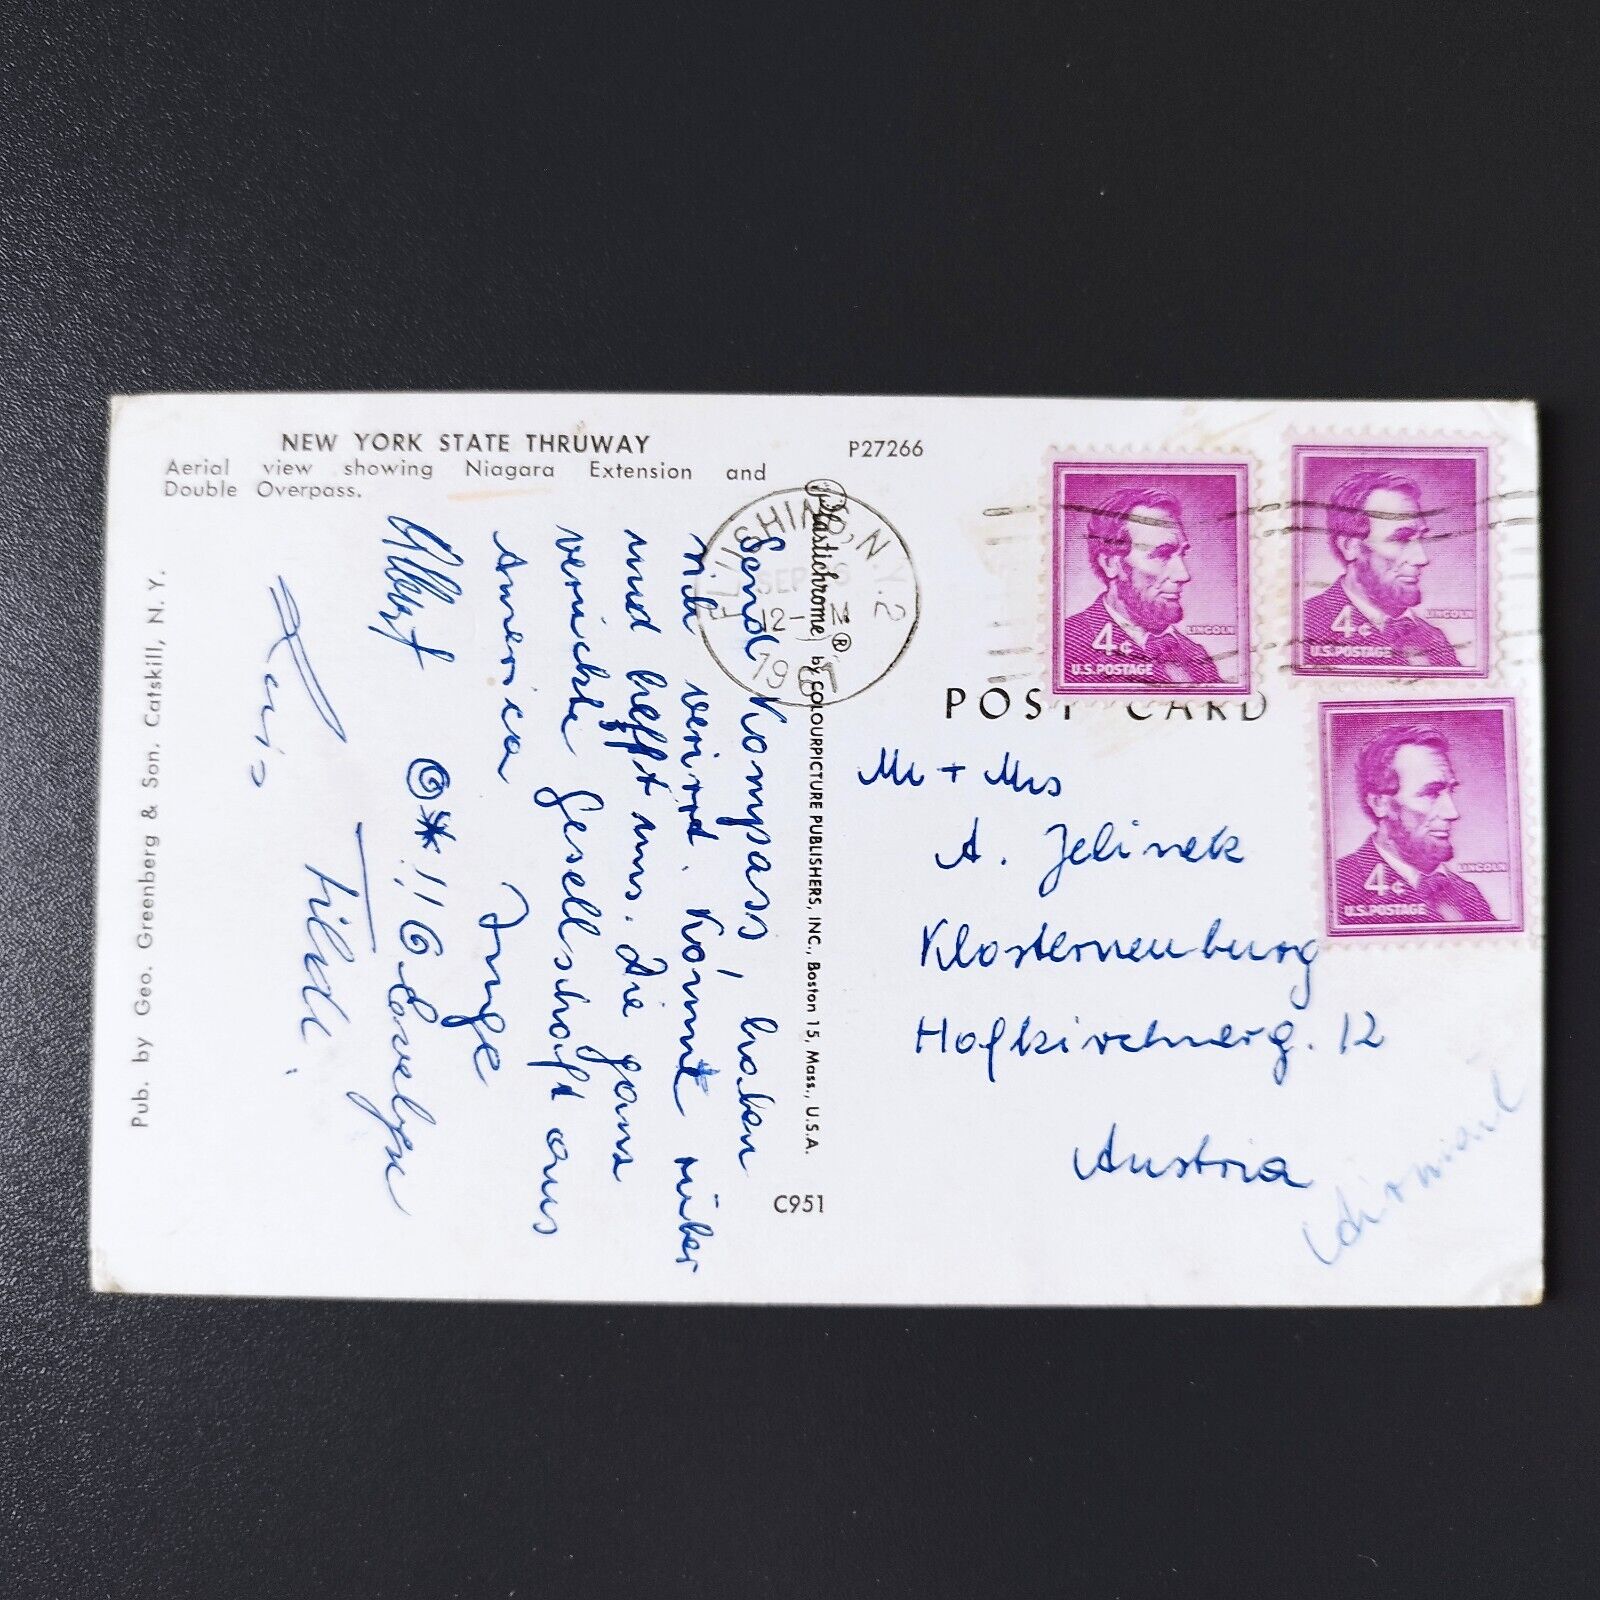 NEW YORK STATE THRUWAY
Aerial view showing Niagara Extension and
Double Overpass.
P27266
Pub. by Geo. Greenberg & Son. Catskill, N. Y.
Plastichrome® by COLOURPICTURE PUBLISHERS, INC., Boston 15, Mass., U.S.A.
C951
Send Kompass, haben
uns verirrt. Kommt rüber
und helft uns. Die ganz
verrückte Gesellschaft aus
America
Inge
Albert
Evelyn
Tilde.
FLUSHING, N.Y. 2
SEP
12-
19
POST CARD
4¢
LINCOLN
U.S. POSTAGE
4¢
LINCOLN
U.S. POSTAGE
4¢
LINCOLN
U.S. POSTAGE
Mr + Mrs
A. Jelinek
Klosterneuburg
Hofkirchnerg. 12
Austria